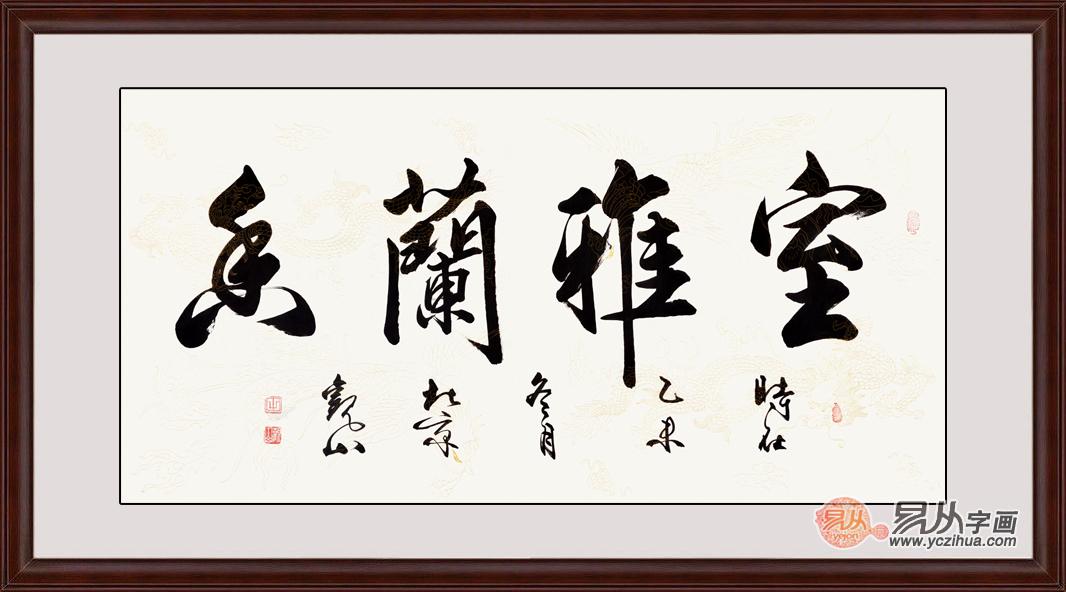 室雅蘭香
時在
乙未
冬月
北京
觀山
易从
yejon
易从字画
www.yczihua.com